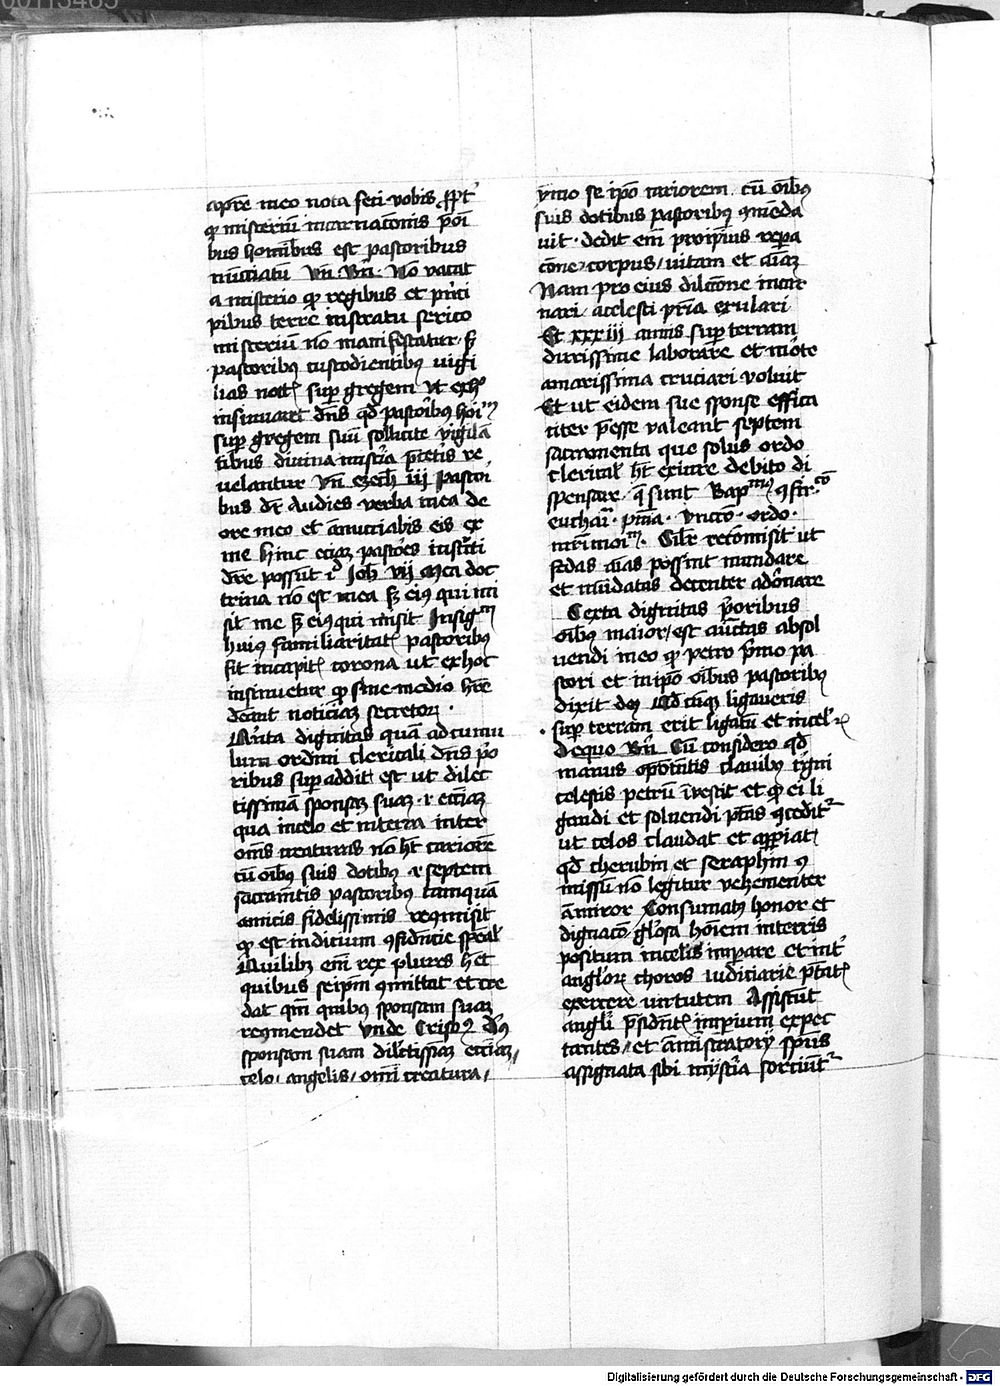 apr̄e meo nota feci vobis ꝓpt̓
ꝙ misteriū incarnac̄onis p̄ori
bus hominibus est pastoribus
nūctiatū vn̄ Br̄n. Nō vacat
a misterio ꝙ regibus et p̓nci
pibus terre instratu serico
misteriū nō manifestatur sꝫ
pastoribꝰ custodientibꝰ vigi
lias noct̄ suꝑ gregem vt ex h°
insinuaret dn̄s qd̓ pastoribꝰ
suꝑ gregem suū sollicite vigilā
tibus divina mist̓ia
velantur vn̄ ezech̄ iii Pastori
bus dr̄ Audies verba mea de
ore meo et ānuctiabis eis ex
me hinc eciaꝫ pastores
dc̄re possūt iͩ Joh̄ vii Mea doc
trina nō est mea sꝫ eiꝰ qui mi
sit me sꝫ eiꝰ qui misit Insig̓ᵐ
huiꝰ familiaritatꝭ pastoribꝰ
fit in capitꝭ corona ut ex hoc
insinuetur ꝙ sine medio hr̄e
debeant noticiaꝫ secretoꝝ .
Qui̓ta dignitas quā ad cumu
lum ordini clericali dn̄s p̄o
ribus suꝑaddit est ut dilec
tissimā sponsaꝫ suaꝫ .i. ecc̄iaꝫ
qua in celo et in terra inter
om̄s creaturas nō ht̄ cariorē
cū oībꝰ suis dotibꝰ .i. septem
sacram̄tis pastoribꝰ tamquā
amicis fidelissimis reꝯmisit
ꝙ est indicium ꝯfidn̄cie sp̄eal̓
Quilibꝫ em̄ rex plures h̄et
quibus seip̄m ꝯmittat et cre
dat qm̄ quibꝰ sponsam suaꝫ
reꝯmendet vnde Cristꝰ dūs
sponsam suam dilc̄tissimaꝫ ecc̄iaꝫ
celo / angelis / om̄i creatura /
ymo se ip̄o cariorem cū oībꝰ
suis dotibus pastoribꝰ ꝯmēda
vit · dedit em̄ pro ip̄ius repa
c̄one / corpus / vitam et aīaꝫ
Nam pro eius dilc̄one incar
nari / a celesti pr̄ia exulari
Et xxxiii annis suꝑ terram
durissime laborare et mōrte
amarissima cruciari voluit
Et ut eidem sue sponse effica
citer p̄esse valeant septem
sacramenta que solus ordo
clerical̓ ht̄ exiure debito di
spensare · q̄ sunt Bapᵐꝰ ꝯfir̓c̄o
eucharī · pn̄ia · vnctō · ordo ·
mr̄imoiᵐ. Cilr̄ recōmisit ut
fedas aīas possint mundare
et mūdatas decenter adōrnare
Sexta dignitas p̄oribus
oībꝰ maior est auctas absol
uendi meo ꝙ petro p̓mo pa
stori et in ip̄o oībus pastoribꝰ
dixit dn̄s Qd̓cūqꝫ ligaueris
suꝑ terram erit ligatū et in cel̓ꝭ
De quo Br̄n Cū considero qd̓
manus op̄otentis clauibꝰ regni
celestis petrū īvestit et ꝙ ei li
gandi et soluendi p̄tas ꝯceditꝛ
ut celos claudat et aꝑiat
qd̓ cherubin et seraphin ꝯ
missū nō legitur vehementer
āmiror Consumatꝰ honor et
dignacō gl̓osa hoīem in terris
positum in celis imꝑare et int̓
angl̓oꝝ choros iudiciarie p̄tatꝭ
exercere virtutem Assistūt
angl̓i p̄sidn̄tꝭ imꝑium expec
tantes / et amīstratorij sp̄us
assignata sibi myst̓ia sorciūtꝛ
Digitalisierung gefördert durch die Deutsche Forschungsgemeinschaft - DFG